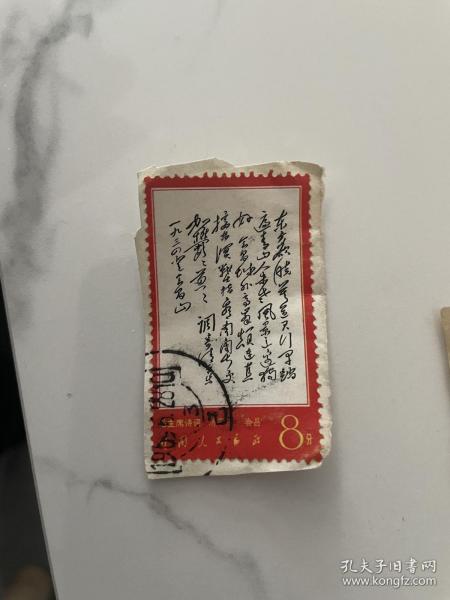 东方欲晓莫道君行早踏
遍青山人未老风景这边独
好会昌城外高峰颠连直
接东溟战士指看南粤更
加郁郁葱葱 调寄清平乐
一九三四年登会昌山
主席诗词 会昌
中国人民邮政 8分
孔夫子旧书网
www.kongfz.com